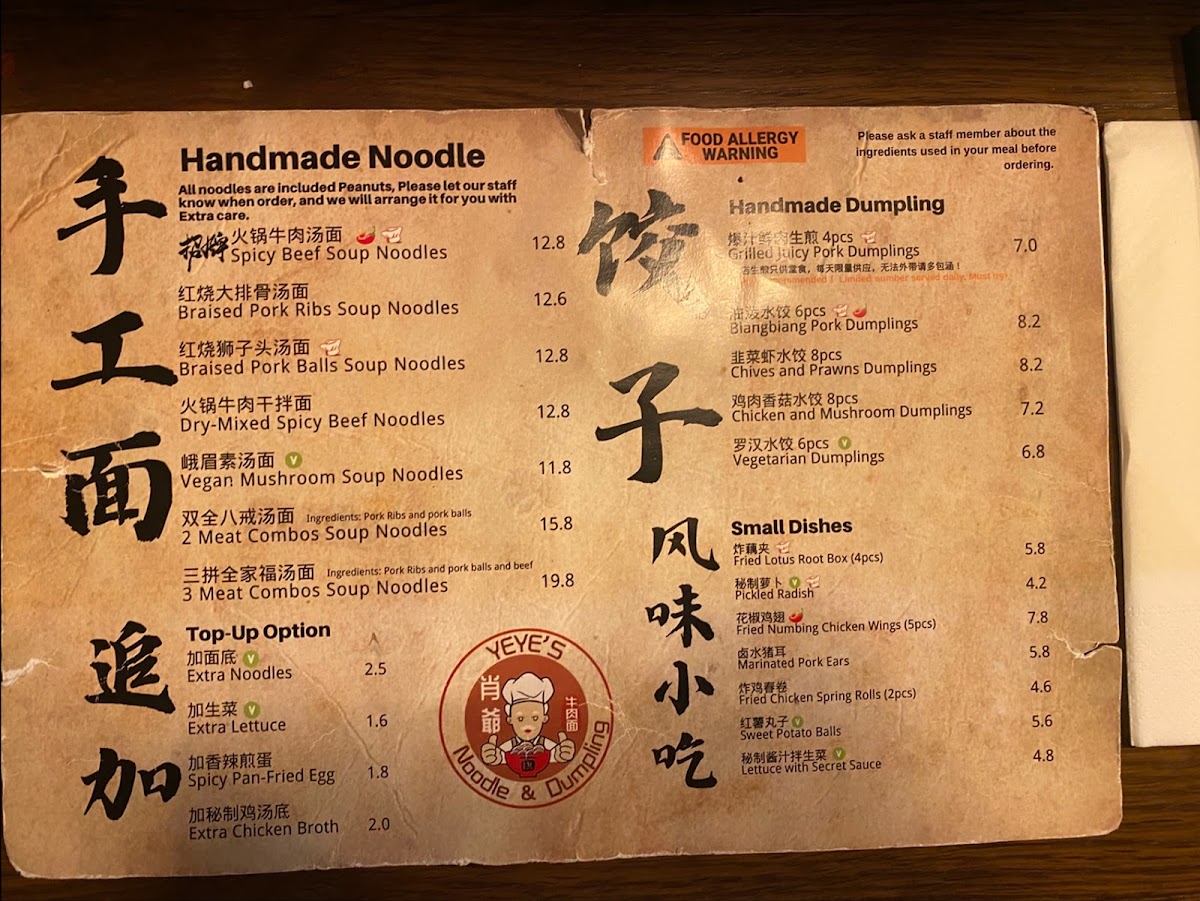 手工面
Handmade Noodle
All noodles are included Peanuts, Please let our staff
know when order, and we will arrange it for you with
Extra care.
招牌 火锅牛肉汤面
Spicy Beef Soup Noodles 12.8
红烧大排骨汤面
Braised Pork Ribs Soup Noodles 12.6
红烧狮子头汤面
Braised Pork Balls Soup Noodles 12.8
火锅牛肉干拌面
Dry-Mixed Spicy Beef Noodles 12.8
峨眉素汤面 V
Vegan Mushroom Soup Noodles 11.8
双全八戒汤面 Ingredients: Pork Ribs and pork balls
2 Meat Combos Soup Noodles 15.8
三拼全家福汤面 Ingredients: Pork Ribs and pork balls and beef
3 Meat Combos Soup Noodles 19.8
追加
Top-Up Option
加面底 V
Extra Noodles 2.5
加生菜 V
Extra Lettuce 1.6
加香辣煎蛋
Spicy Pan-Fried Egg 1.8
加秘制鸡汤底
Extra Chicken Broth 2.0
YEYE'S
肖爺
牛肉面
Noodle & Dumpling
FOOD ALLERGY
WARNING
Please ask a staff member about the
ingredients used in your meal before
ordering.
饺子
Handmade Dumpling
爆汁鲜肉生煎 4pcs
Grilled Juicy Pork Dumplings 7.0
生煎只供堂食，每天限量供应，无法外带请多包涵！
Limited number served daily, Must try!
油泼水饺 6pcs
Biangbiang Pork Dumplings 8.2
韭菜虾水饺 8pcs
Chives and Prawns Dumplings 8.2
鸡肉香菇水饺 8pcs
Chicken and Mushroom Dumplings 7.2
罗汉水饺 6pcs V
Vegetarian Dumplings 6.8
风味小吃
Small Dishes
炸藕夹
Fried Lotus Root Box (4pcs) 5.8
秘制萝卜 V
Pickled Radish 4.2
花椒鸡翅
Fried Numbing Chicken Wings (5pcs) 7.8
卤水猪耳
Marinated Pork Ears 5.8
炸鸡春卷
Fried Chicken Spring Rolls (2pcs) 4.6
红薯丸子 V
Sweet Potato Balls 5.6
秘制酱汁拌生菜 V
Lettuce with Secret Sauce 4.8